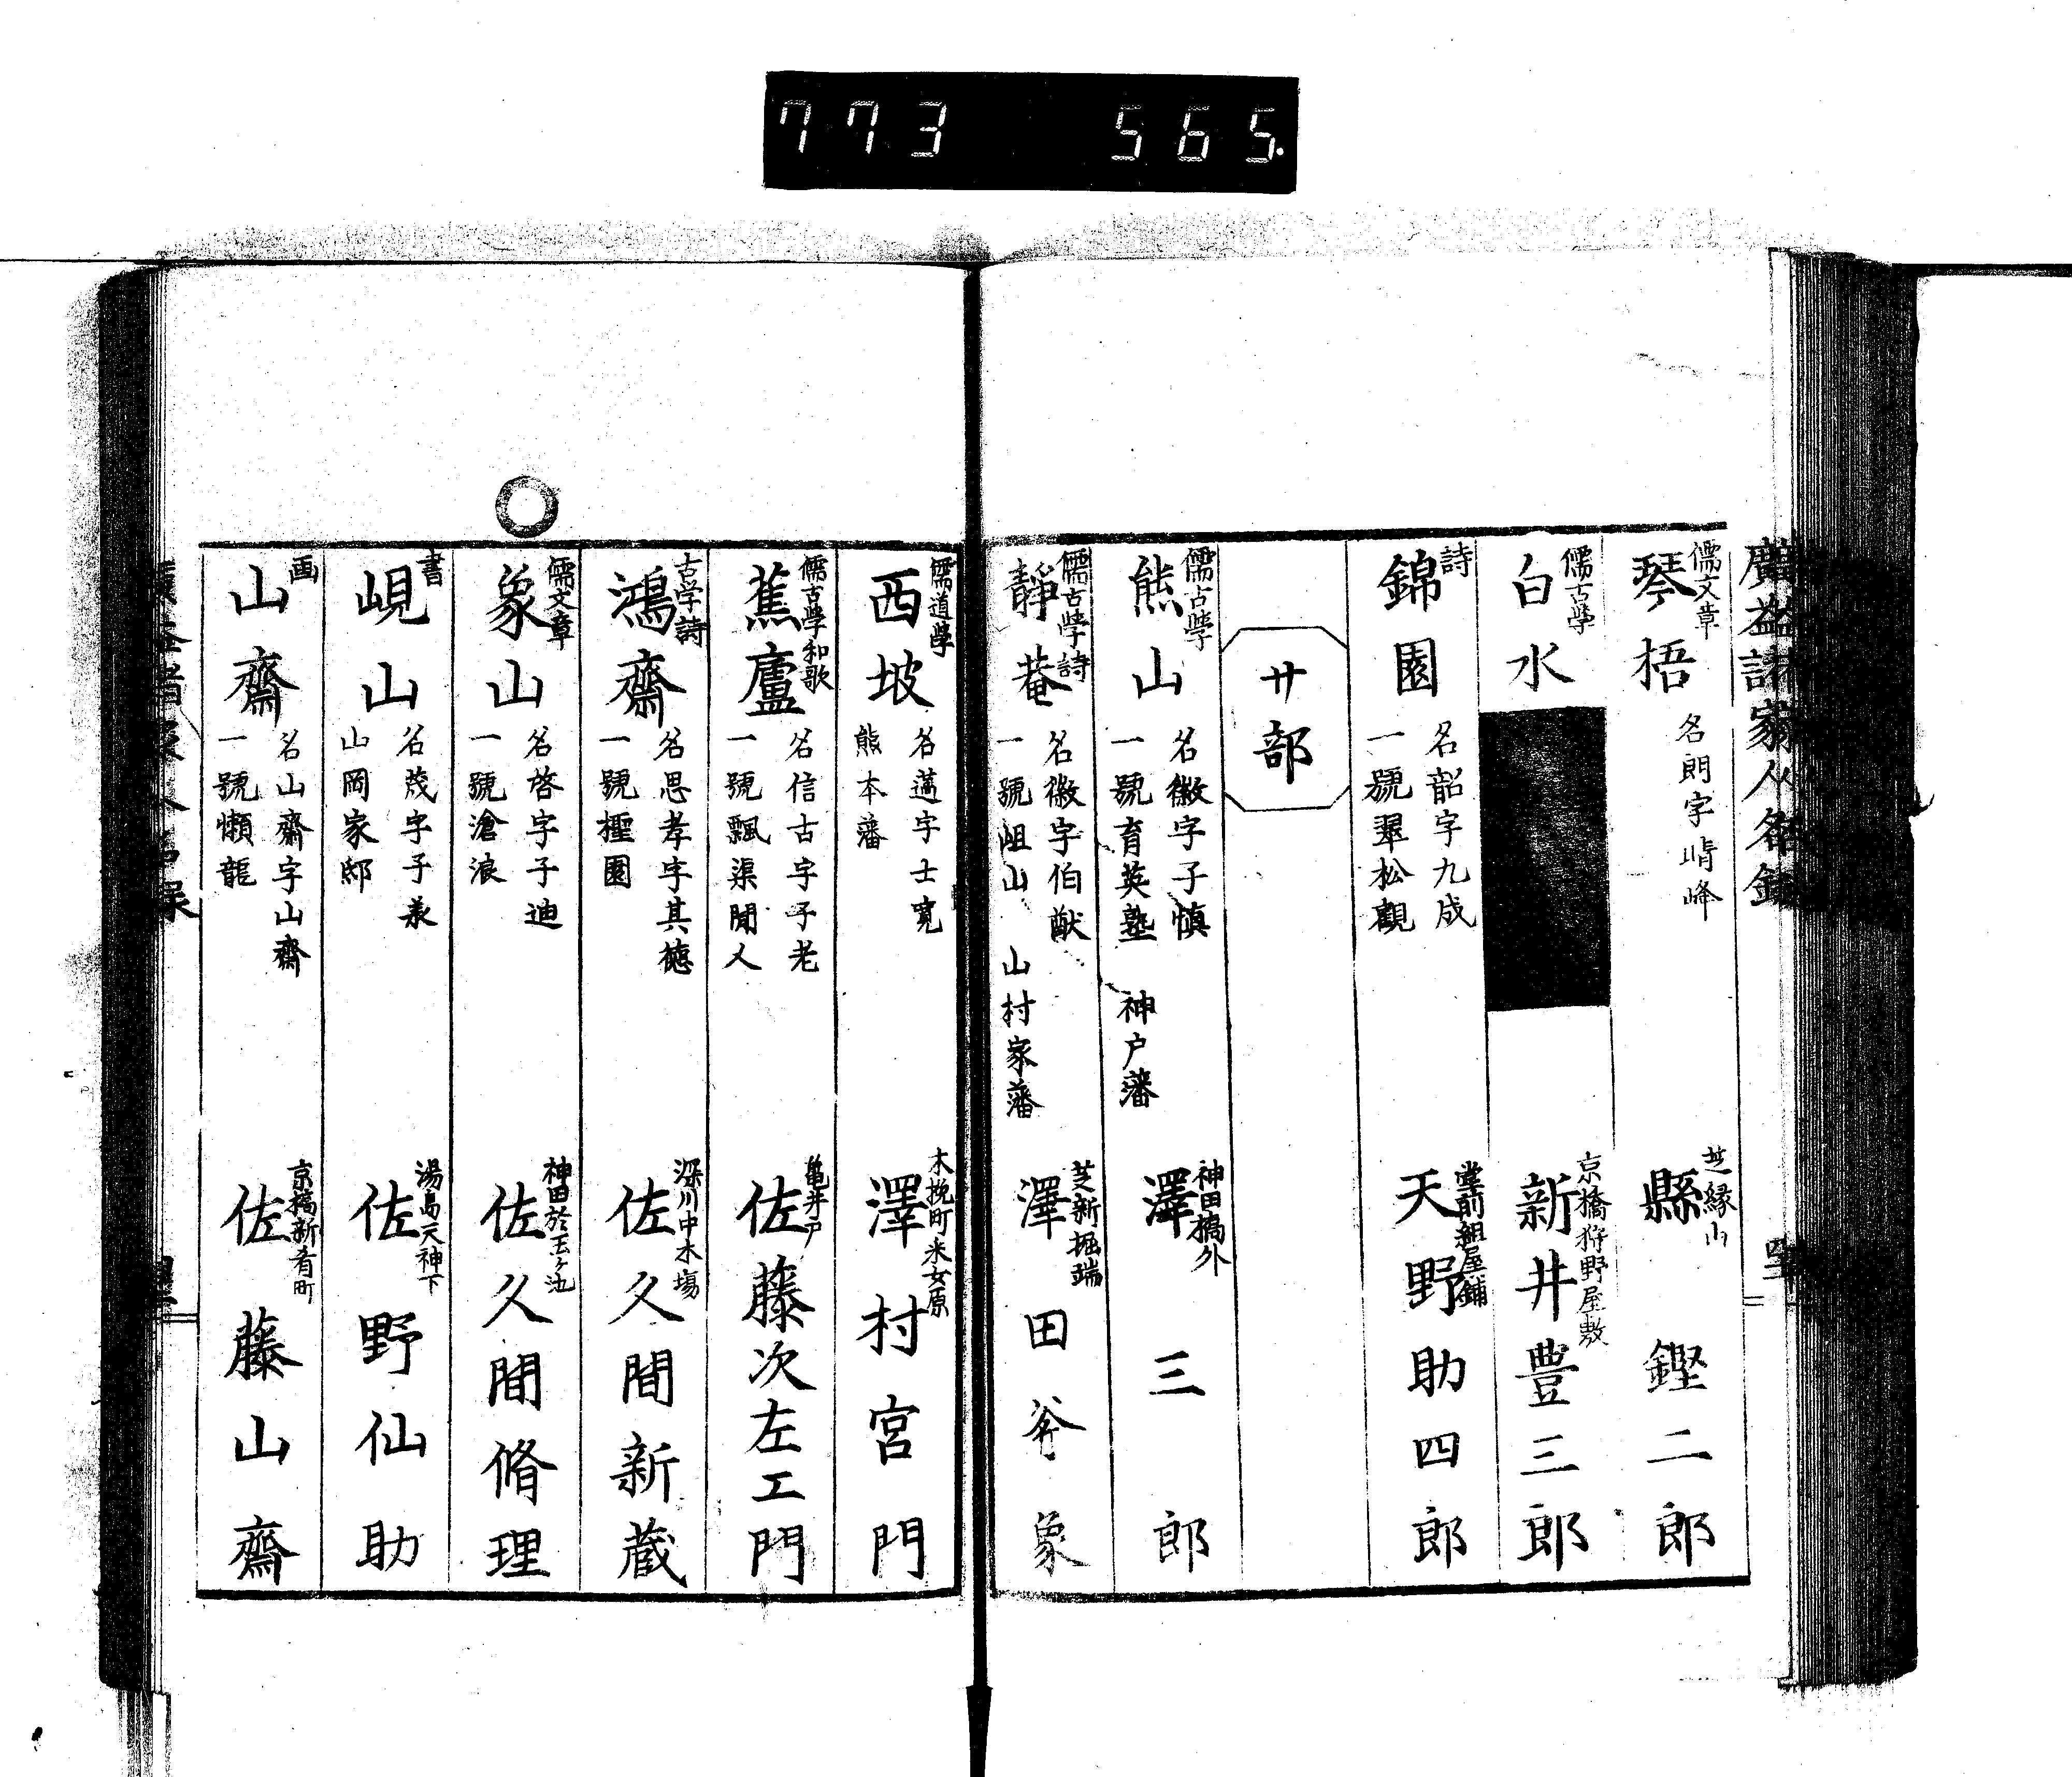 773 565.
廣益諸家人名録
儒文章
琴梧
名朗字晴峰
芝縁山
縣鏗二郎
儒古學
白水
京橋狩野屋敷
新井豊三郎
詩
錦園
名韶字九成
一號翠松觀
堂前組屋鋪
天野助四郎
サ部
儒古學
熊山
名徽字子慎
一號育英塾
神戸藩
神田橋外
澤三郎
儒古學詩
靜菴
名徽字伯猷
一號岨山
山村家藩
芝新堀端
澤田斧象
儒道學
西坡
名邁字士寛
熊本藩
木挽町采女原
澤村宮門
儒古學和歌
蕉廬
名信古字子老
一號瓢渠閒人
亀井戸
佐藤次左エ門
古学詩
鴻齋
名思孝字其徳
一號檉園
深川中木場
佐久間新蔵
儒文章
象山
名啓字子迪
一號滄浪
神田於玉ヶ池
佐久間脩理
書
峴山
名茂字子羨
山岡家邸
湯島天神下
佐野仙助
画
山齋
名山齋字山齋
一號懶龍
京橋新肴町
佐藤山齋